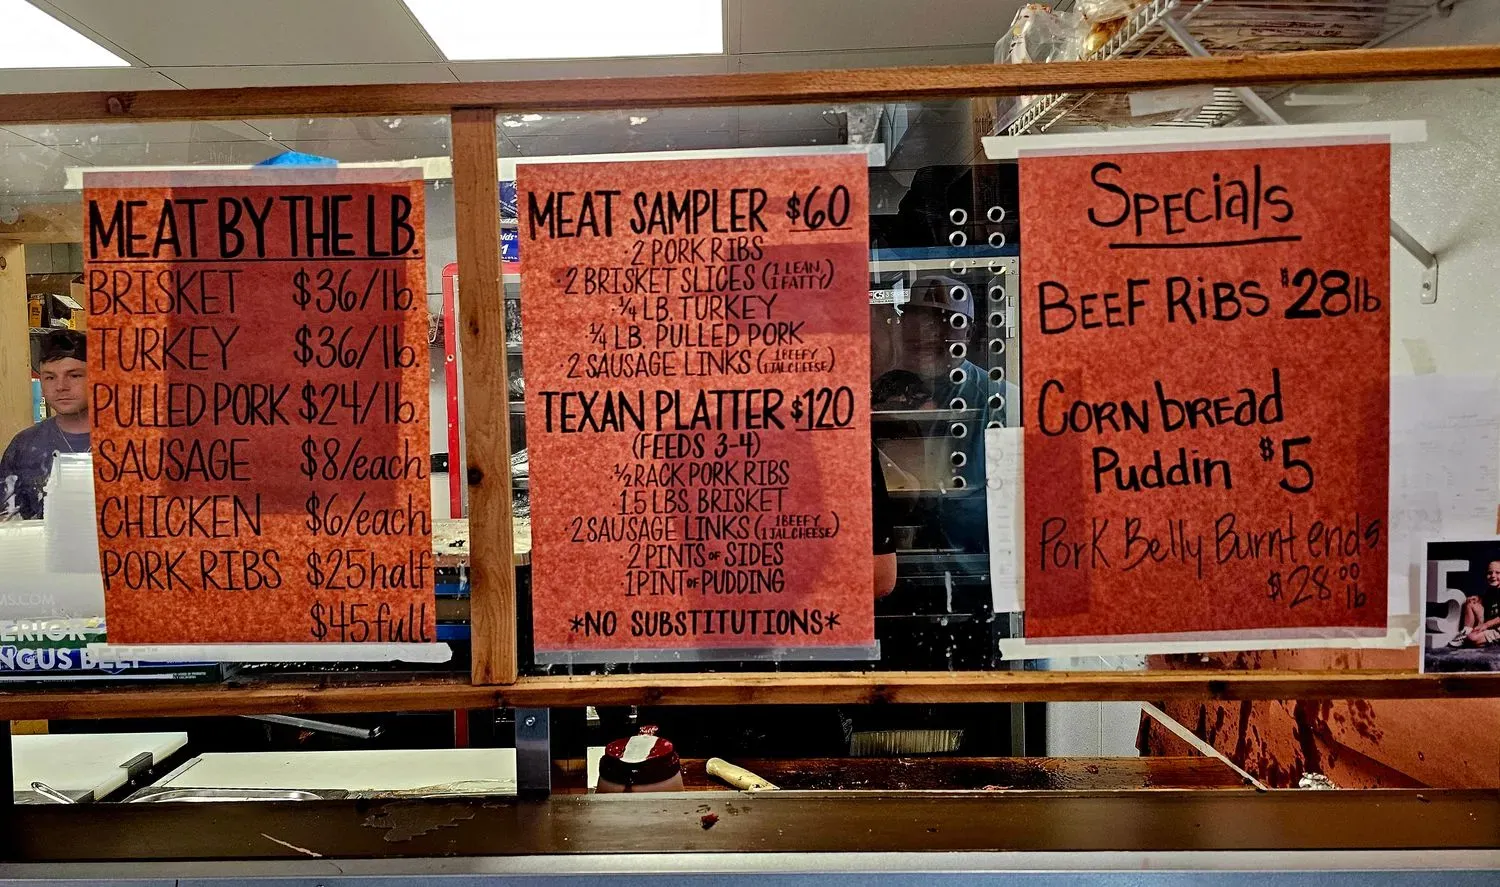 MEAT BY THE LB.
BRISKET $36/lb.
TURKEY $36/lb.
PULLED PORK $24/lb.
SAUSAGE $8/each
CHICKEN $6/each
PORK RIBS $25 half
$45 full
MEAT SAMPLER $60
· 2 PORK RIBS
· 2 BRISKET SLICES (1 LEAN, 1 FATTY)
· 1/4 LB. TURKEY
· 1/4 LB. PULLED PORK
· 2 SAUSAGE LINKS (1 BEEFY, 1 JALCHEESE)
TEXAN PLATTER $120
(FEEDS 3-4)
· 1/2 RACK PORK RIBS
· 1.5 LBS. BRISKET
· 2 SAUSAGE LINKS (1 BEEFY, 1 JALCHEESE)
· 2 PINTS OF SIDES
· 1 PINT OF PUDDING
*NO SUBSTITUTIONS*
Specials
BEEF RiBS $28 lb
CORN bREAd
PuddiN $5
Pork Belly Burnt ends
$28.00 lb
MS.COM
ERIOR
NGUS BEEF
5